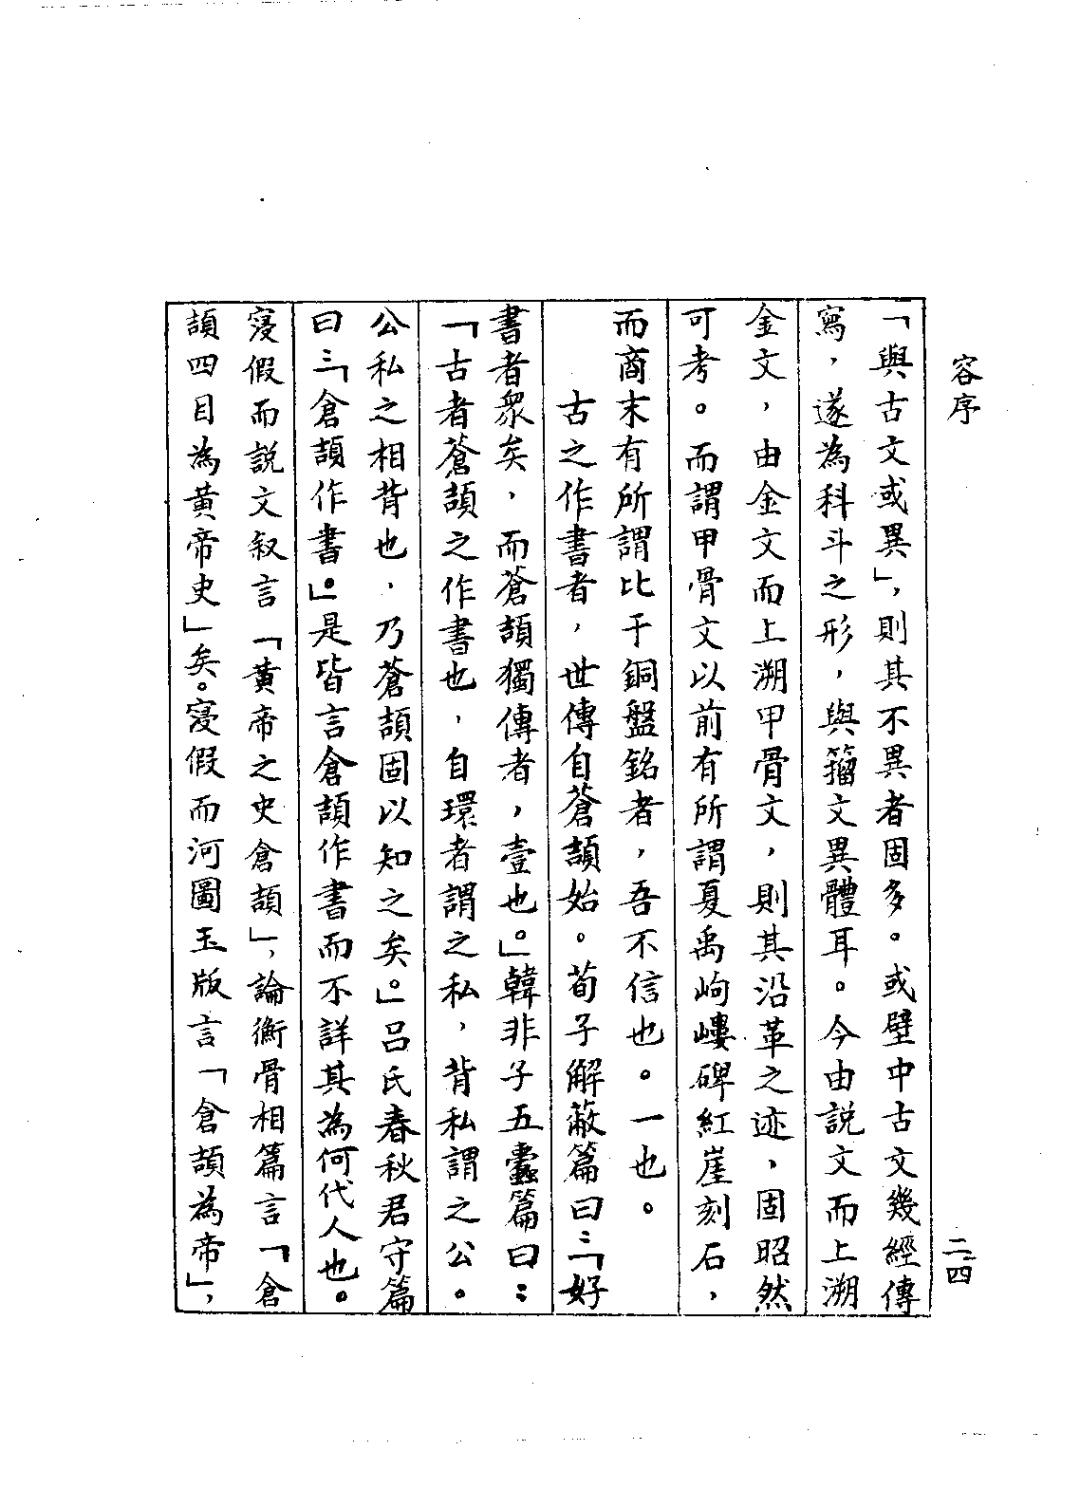 容序
二‧四
「與古文或異」，則其不異者固多。或壁中古文幾經傳
寫，遂為科斗之形，與籀文異體耳。今由說文而上溯
金文，由金文而上溯甲骨文，則其沿革之迹，固昭然
可考。而謂甲骨文以前有所謂夏禹岣嶁碑紅崖刻石，
而商末有所謂比干銅盤銘者，吾不信也。一也。
古之作書者，世傳自蒼頡始。荀子解蔽篇曰：「好
書者眾矣，而蒼頡獨傳者，壹也。」韓非子五蠹篇曰：
「古者蒼頡之作書也，自環者謂之私，背私謂之公。
公私之相背也，乃蒼頡固以知之矣。」呂氏春秋君守篇
曰：「倉頡作書。」是皆言倉頡作書而不詳其為何代人也。
寖假而說文叙言「黃帝之史倉頡」，論衡骨相篇言「倉
頡四目為黃帝史」矣。寖假而河圖玉版言「倉頡為帝」，